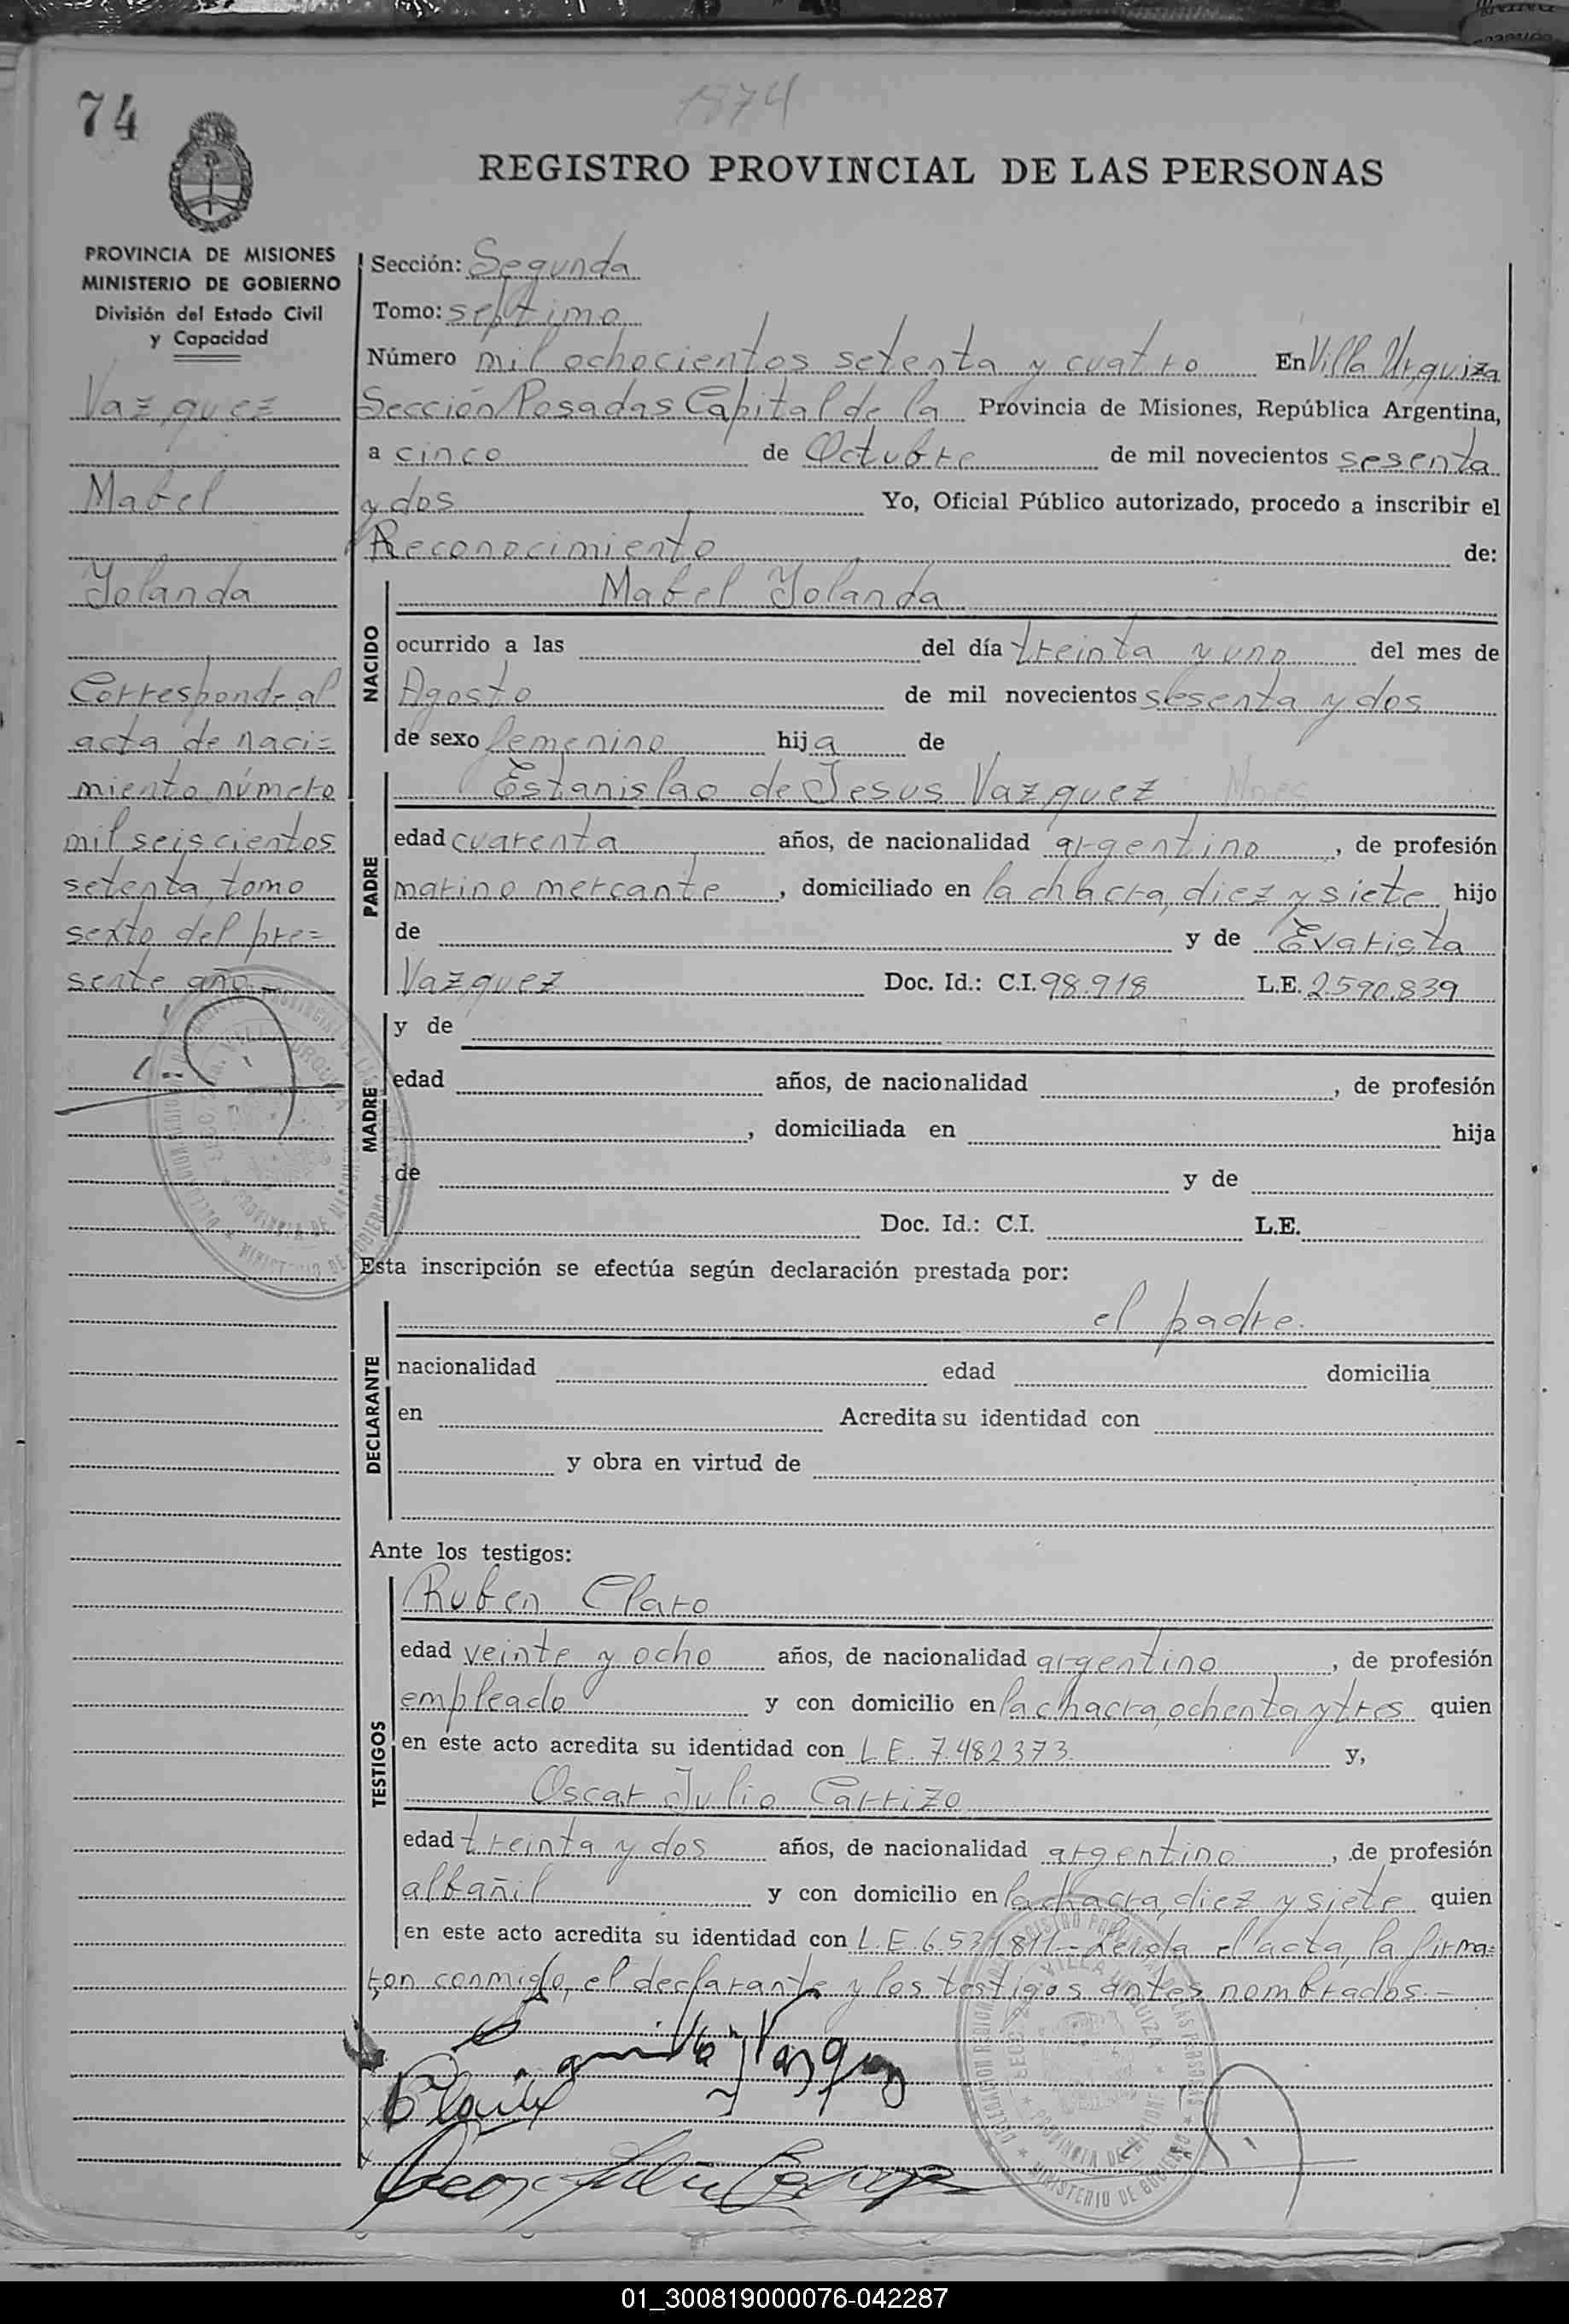 74
1874
REGISTRO PROVINCIAL DE LAS PERSONAS
PROVINCIA DE MISIONES
MINISTERIO DE GOBIERNO
División del Estado Civil
y Capacidad
Vazquez
Mabel
Yolanda
Corresponde al
acta de naci=
miento número
mil seiscientos
setenta, tomo
sexto del pre=
sente año.-
Sección: Segunda
Tomo: septimo
Número mil ochocientos setenta y cuatro En Villa Urquiza
Sección Posadas Capital de la Provincia de Misiones, República Argentina,
a cinco de Octubre de mil novecientos sesenta
y dos Yo, Oficial Público autorizado, procedo a inscribir el
Reconocimiento de:
NACIDO
Mabel Yolanda
ocurrido a las del día treinta y uno del mes de
Agosto de mil novecientos sesenta y dos
de sexo femenino hija de
PADRE
Estanislao de Jesus Vazquez
edad cuarenta años, de nacionalidad argentino, de profesión
marino mercante, domiciliado en la chacra, diez y siete hijo
de y de Evarista
Vazquez Doc. Id.: C.I. 98.918 L.E. 2.590.839
MADRE
y de
edad años, de nacionalidad , de profesión
, domiciliada en hija
de y de
Doc. Id.: C.I. L.E.
Esta inscripción se efectúa según declaración prestada por:
DECLARANTE
el padre.
nacionalidad edad domicilia
en Acredita su identidad con
y obra en virtud de
Ante los testigos:
TESTIGOS
Ruben Claro
edad veinte y ocho años, de nacionalidad argentino, de profesión
empleado y con domicilio en la chacra, ochenta y tres quien
en este acto acredita su identidad con L.E. 7.482373 y,
Oscar Julio Carrizo
edad treinta y dos años, de nacionalidad argentino, de profesión
albañil y con domicilio en la chacra, diez y siete quien
en este acto acredita su identidad con L.E. - Leida el acta, la firma=
ron conmigo, el declarante y los testigos antes nombrados.-
VILLA URQUIZA
PROVINCIA DE MISIONES
MINISTERIO DE GOBIERNO
01_300819000076-042287